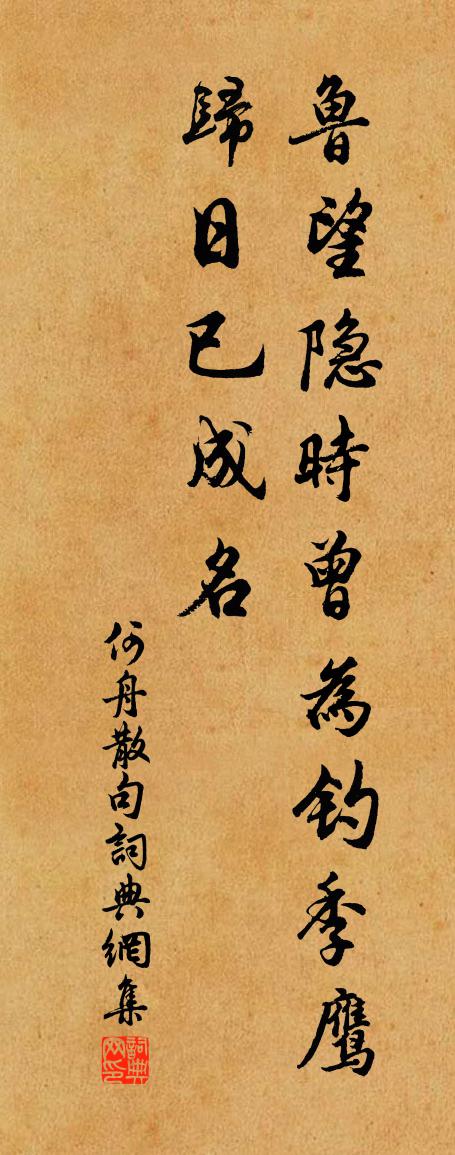 魯望隐時曾為钓季鹰
歸日已成名
何舟散句詞典網集
詞典网印